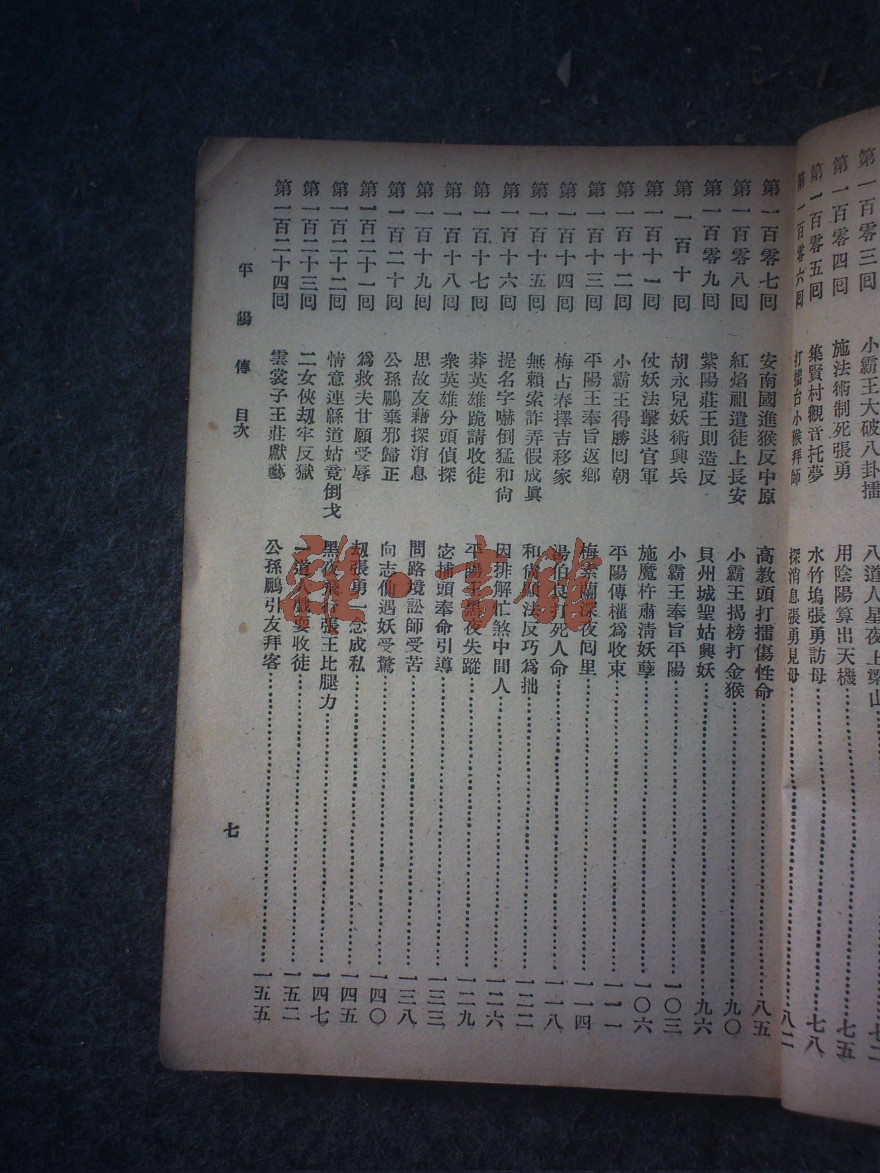 第一百零三回　小霸王大破八卦擂　八道人星夜上梁山
第一百零四回　施法術制死張勇　用陰陽算出天機……七五
第一百零五回　集賢村觀音托夢　水竹塢張勇訪母……七八
第一百零六回　打擂台小猴拜師　探消息張勇見母……八二
第一百零七回　安南國進猴反中原　高教頭打擂傷性命……八五
第一百零八回　紅焰祖遣徒上長安　小霸王揭榜打金猴……九〇
第一百零九回　紫陽莊王則造反　貝州城聖姑興妖……九六
第一百十回　胡永兒妖術興兵　小霸王奉旨平陽……一〇三
第一百十一回　仗妖法擊退官軍　施魔杵肅淸妖孽……一〇六
第一百十二回　小霸王得勝回朝　平陽傳權爲收束……一一一
第一百十三回　平陽王奉旨返鄕　梅素蘭深夜回里……一一四
第一百十四回　梅占春擇吉移家　湯伯良打死人命……一一八
第一百十五回　無賴索詐弄假成眞　和尙鬥法反巧爲拙……一二二
第一百十六回　提名字嚇倒猛和尙　因排解忙煞中間人……一二六
第一百十七回　莽英雄跪請收徒　平陽王黑夜失蹤……一二九
第一百十八回　衆英雄分頭偵探　宓捕頭奉命引導……一三三
第一百十九回　思故友藉探消息　問路境訟師受苦……一三八
第一百二十回　公孫鵬棄邪歸正　向志仙遇妖受驚……一四〇
第一百二十一回　爲救夫甘願受辱　刼張勇一念成私……一四五
第一百二十二回　情意連緜道姑竟倒戈　黑夜飛行張王比腿力……一四七
第一百二十三回　二女俠刼牢反獄　一道人戲耍收徒……一五二
第一百二十四回　雲裳子王莊獻藝　公孫鵬引友拜客……一五五
平陽傳　目次
七
雜·書館